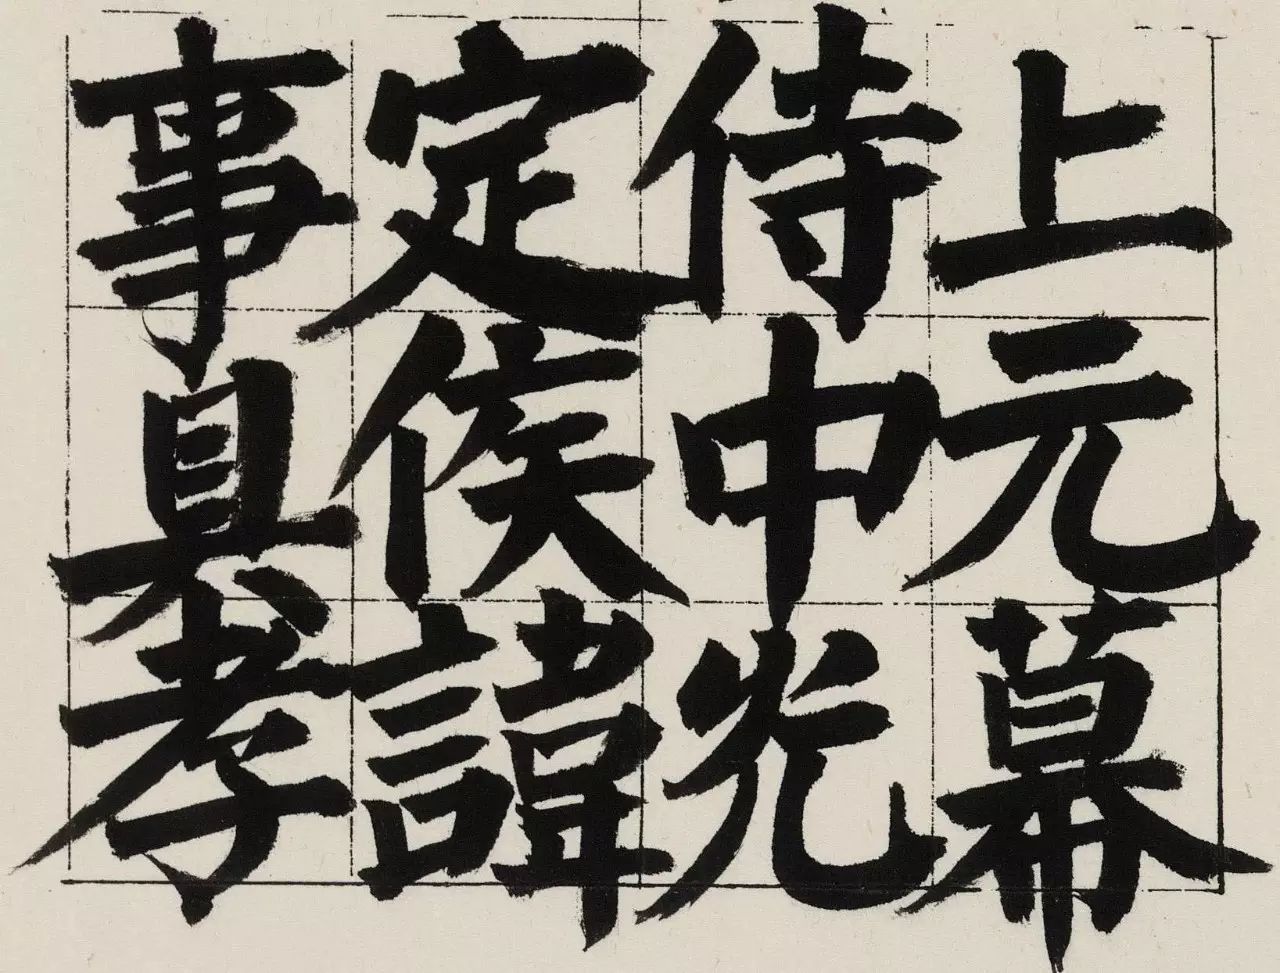 上元幕
侍中光
定侯諱
事具孝